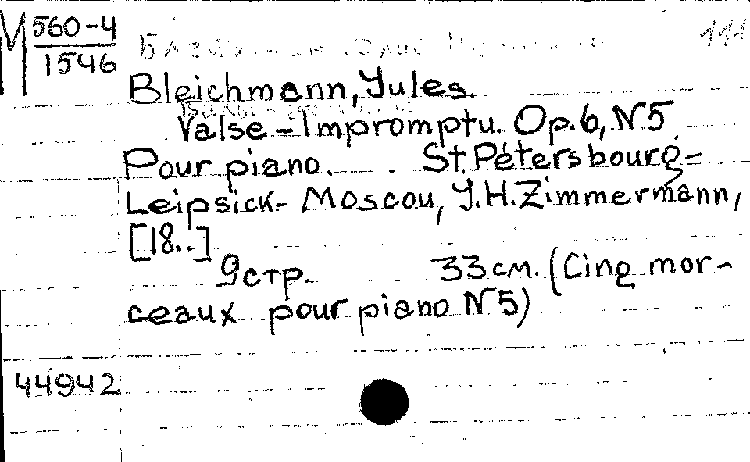 М 560-4
1546
Bleichmann, Jules.
Valse-Impromptu. Op.6, N5
Pour piano. St.Pétersbourg-
Leipsick- Moscou, J.H.Zimmermann,
[18..]
9 стр. 33 см. (Cinq mor-
ceaux pour piano N5)
44942